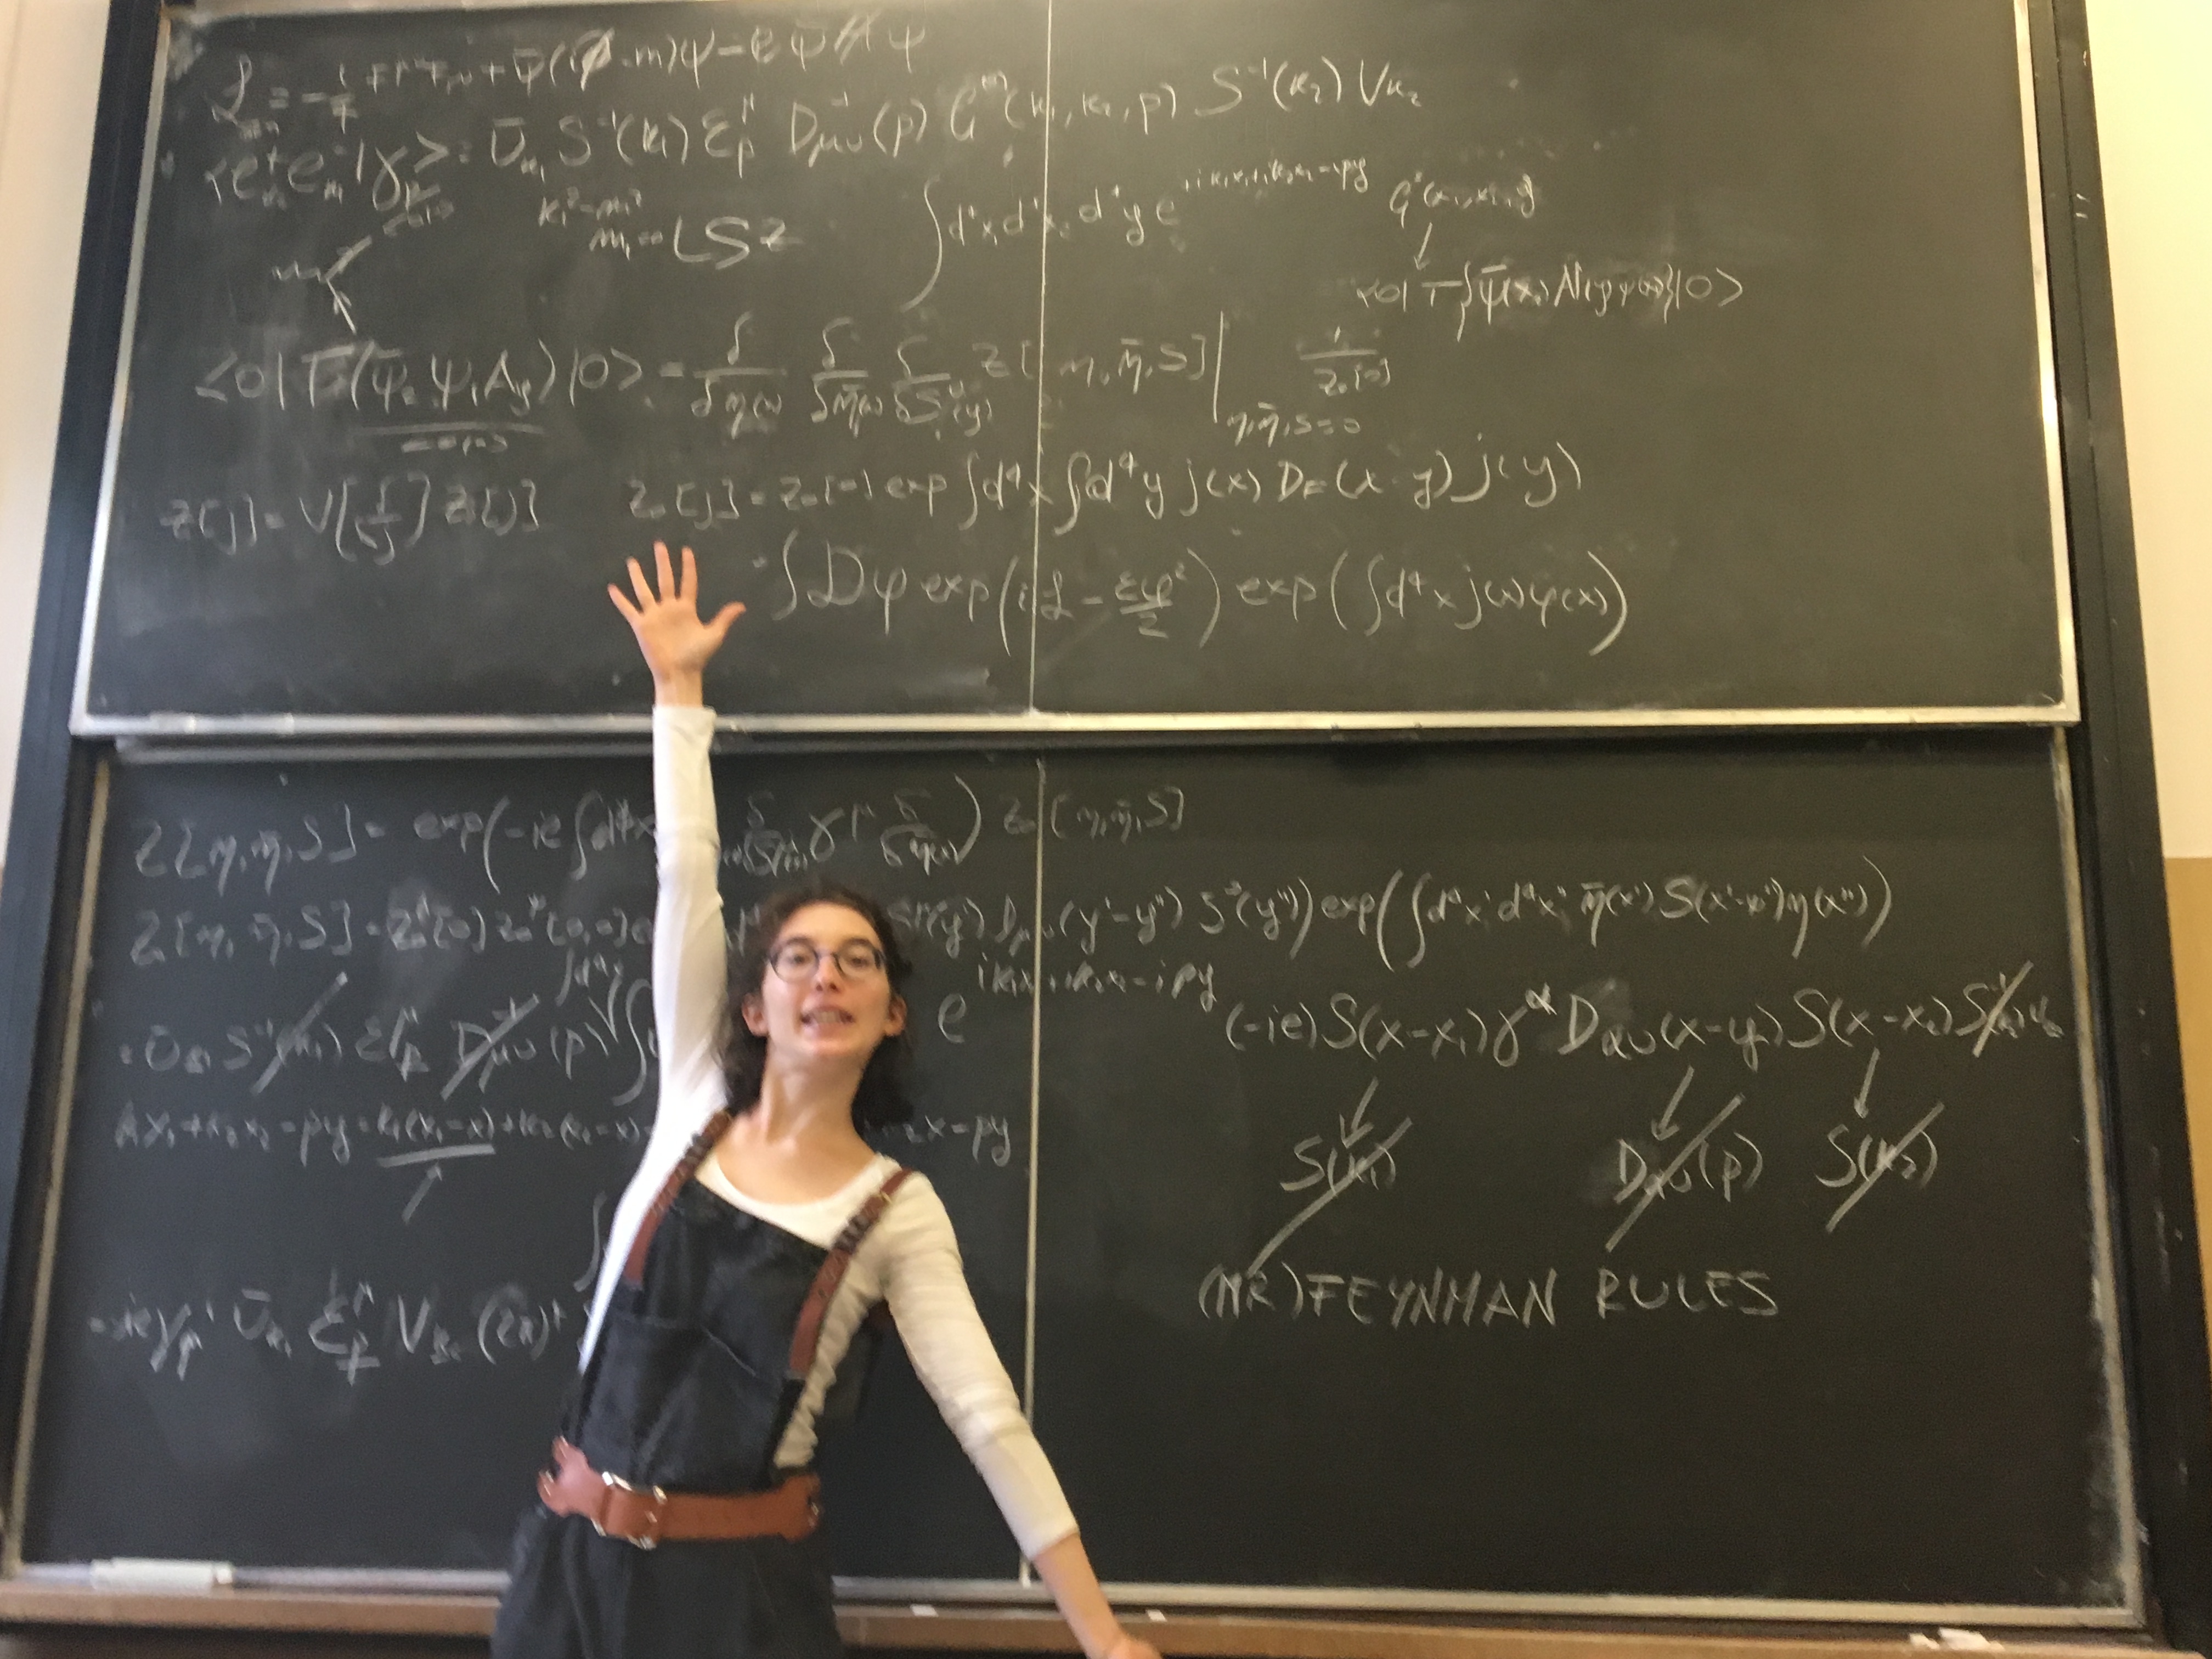 ℒ = -1/4 F^μν F_μν + ψ̄(i∂̸ - m)ψ - e ψ̄ A̸ ψ
<e⁺ e⁻ |γ> = Ū_k₁ S⁻¹(k₁) ε_p^μ D⁻¹_μν(p) G (k₁, k₂, p) S⁻¹(k₂) V_k₂
LSZ ∫d⁴x₁ d⁴x₂ d⁴y e^(+ik₁x₁+ik₂x₂-ipy)
<0|T{ψ̄(x₂) ψ(x₁)}|0>
<0|T(ψ̄₂ ψ₁ A_y)|0> = δ/δη(x) δ/δη̄(x) δ/δS(y) Z[η, η̄, S]| η,η̄,S=0 1/Z₀[0]
Z[j] = V[δ/δj] Z₀[j] Z₀[j] = Z₀[0] exp ∫d⁴x ∫d⁴y j(x) D_F(x-y) j(y)
= ∫Dφ exp(iℒ - εφ²/2) exp(∫d⁴x j(x)φ(x))
Z[η, η̄, S] = exp(-ie ∫d⁴x γ^μ δ/δη(x)) Z₀[η, η̄, S]
Z₀[η, η̄, S] = Z₀[0] Z₀[0,0] S^μ(y') D_μν(y'-y'') S^ν(y'')) exp(∫d⁴x' d⁴x'' η̄(x') S(x'-x'') η(x''))
= Ū_k₁ S⁻¹(k₁) ε_p^μ D⁻¹_μν(p) ∫d⁴x e^(ik₁x₁+ik₂x₂-ipy) (-ie) S(x-x₁) γ^α D_αν(x-y) S(x-x₂) S⁻¹(k₂) V_k₂
k₁x₁+k₂x₂-py = k₁(x₁-x)+k₂(x₂-x) k₂x-py
S(k₁) D_αν(p) S(k₂)
= -ieγ^μ Ū_k₁ ε_p^μ V_k₂ (2π)⁴
(MR) FEYNMAN RULES